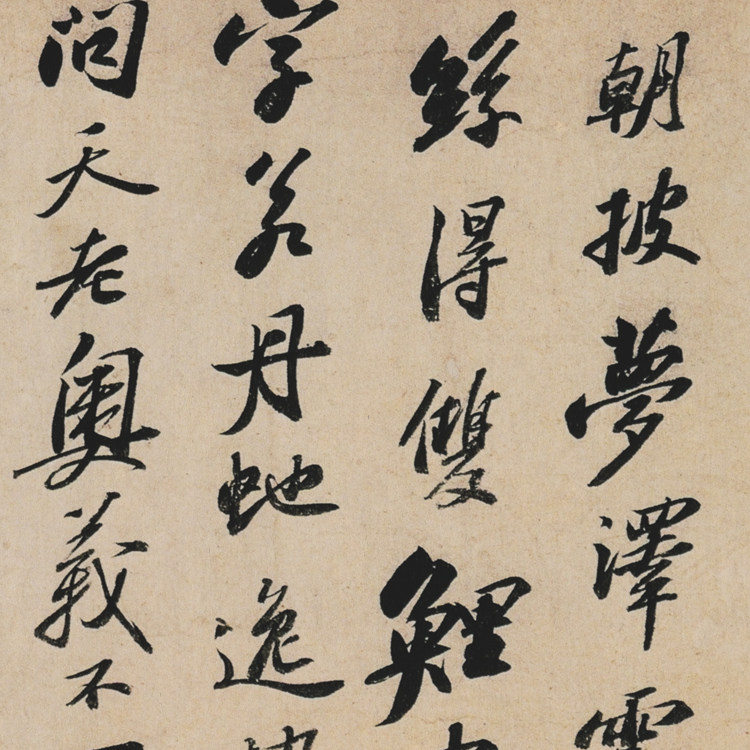 朝披夢澤雲
絲得雙鯉
字若丹虵逸
問天老奧義不